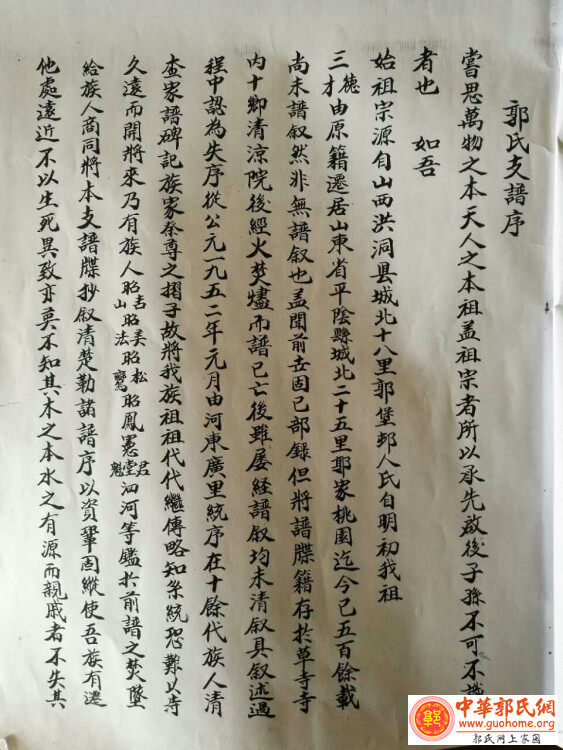 郭氏支譜序
嘗思萬物之本天人之本祖盖祖宗者所以承先啟後子孫不可不誠
者也 如吾
始祖宗源自山西洪洞县城北十八里郭堡邨人氏自明初我祖
三德才由原籍遷居山東省平陰縣城北二十五里郭家桃園迄今已五百餘載
尚未譜叙然非無譜叙也盖聞前去固已部録但將譜牒籍存於草寺寺
内十卿清凉院後經火焚燼而譜已亡後雖屡経譜叙均未清叙具叙述過
程中認為失序從公元一九五二年元月由河東廣里統序在十餘代族人清
查家譜碑記族家奉尊之摺子故將我族祖祖代代繼傳略知系統恐難以寺
久遠而開將來乃有族人昭吉山昭美法昭松鸞昭鳳憲君堂魁泗河等鑑於前譜之焚墜
給族人商同將本支譜牒抄叙清楚勒諸譜序以資鞏固縱使吾族有遷
他處遠近不以生死異致亦莫不知其木之本水之有源而親戚者不失其
中華郭氏網
www.guohome.org
郭氏网上家园